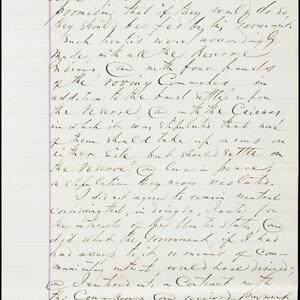 promising that if they would do so,
they should be fed by his Government
Such treaties were accordingly
made, with all the Reserve
Indians, and with four bands
of the roving Comanches in
addition to the band settled upon
the Reserve, and with the Caicoas
in which it was stipulated that none
of them should take up arms on
either side but should settle on
the Reserve, and live in peace,
a stipulation they never violated.
I did not agree to remain neutral
considering that, in doing so, I acted for
the interests of the United States, and
did what the Government, if I had
had access to it, or means of com-
municating with it, would have desired,
and I entered into a Contract with
the Comanches and received payment